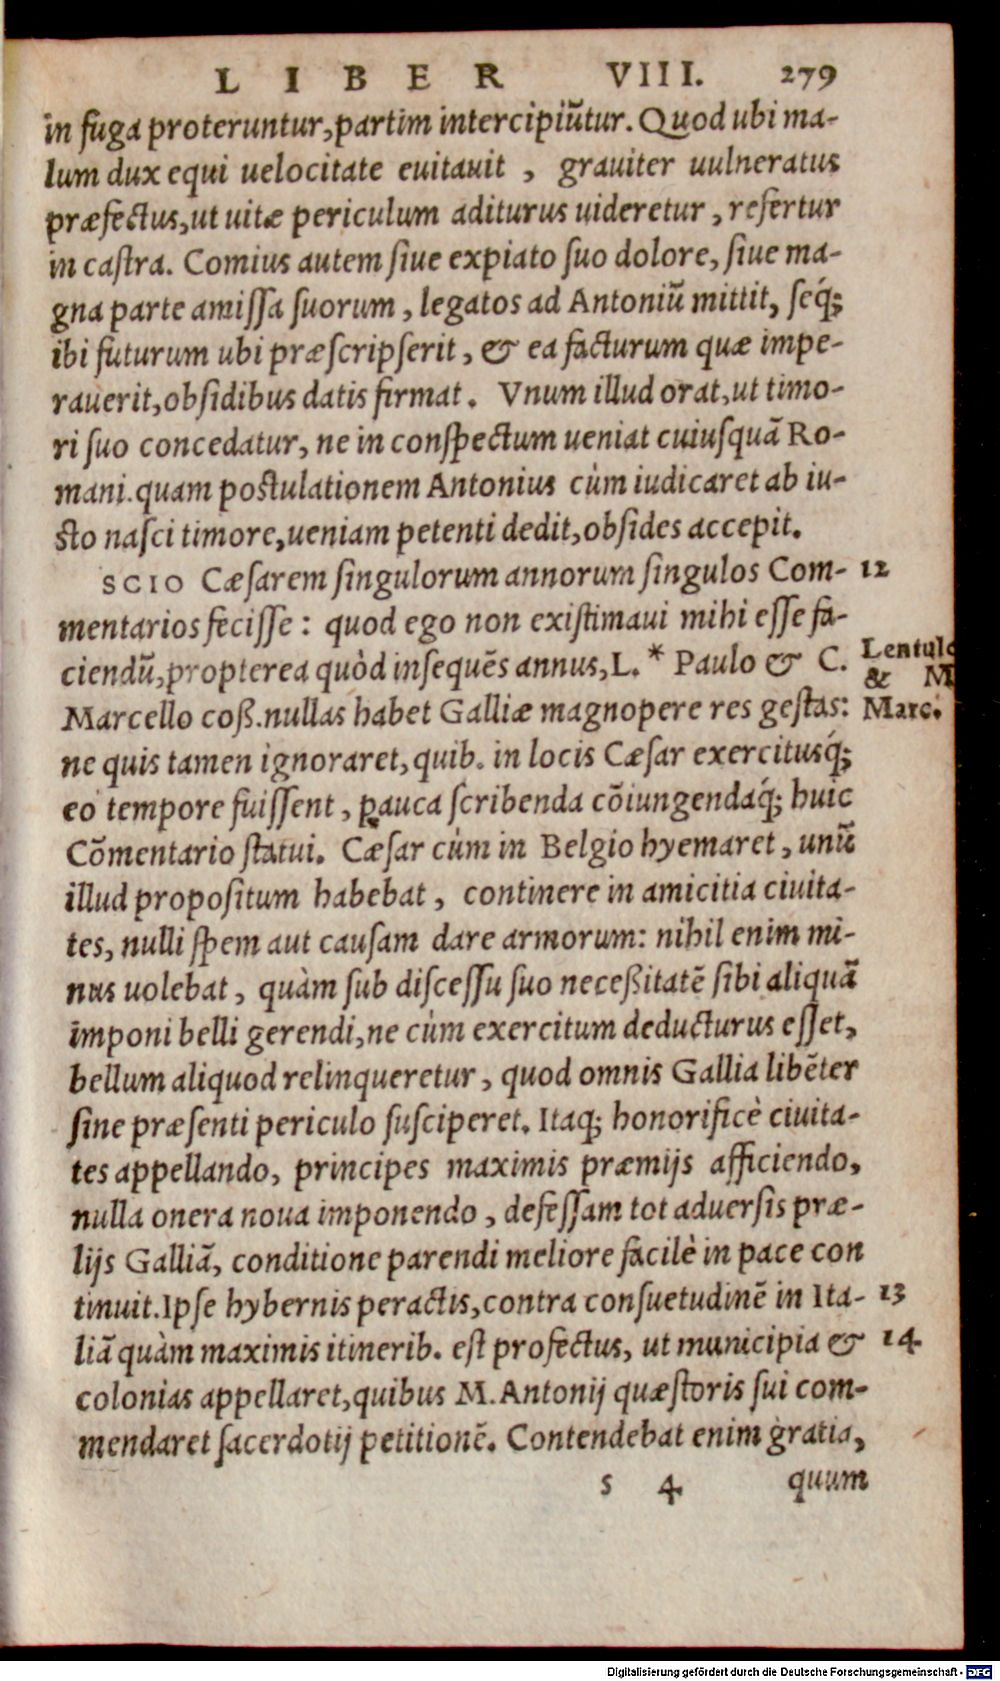 LIBER VIII. 279
in fuga proteruntur, partim intercipiũtur. Quod ubi ma-
lum dux equi uelocitate euitauit, grauiter uulneratus
præfectus, ut uitæ periculum aditurus uideretur, refertur
in castra. Comius autem siue expiato suo dolore, siue ma-
gna parte amissa suorum, legatos ad Antoniũ mittit, seq́;
ibi futurum ubi præscripserit, & ea facturum quæ impe-
rauerit, obsidibus datis firmat. Vnum illud orat, ut timo-
ri suo concedatur, ne in conspectum ueniat cuiusquã Ro-
mani. quam postulationem Antonius cùm iudicaret ab iu-
sto nasci timore, ueniam petenti dedit, obsides accepit.
SCIO Cæsarem singulorum annorum singulos Com- 12
mentarios fecisse: quod ego non existimaui mihi esse fa-
ciendũ, propterea quòd insequẽs annus, L. * Paulo & C. Lentulo
& M
Marcello coß. nullas habet Galliæ magnopere res gestas: Marc.
ne quis tamen ignoraret, quib. in locis Cæsar exercitusq́;
eo tempore fuissent, pauca scribenda cõiungendaq́; huic
Cõmentario statui. Cæsar cùm in Belgio hyemaret, unũ
illud propositum habebat, continere in amicitia ciuita-
tes, nulli spem aut causam dare armorum: nihil enim mi-
nus uolebat, quàm sub discessu suo neceßitatẽ sibi aliquã
imponi belli gerendi, ne cùm exercitum deducturus esset,
bellum aliquod relinqueretur, quod omnis Gallia libẽter
sine præsenti periculo susciperet. Itaq; honorificè ciuita-
tes appellando, principes maximis præmijs afficiendo,
nulla onera noua imponendo, defessam tot aduersis præ-
lijs Galliã, conditione parendi meliore facilè in pace con
tinuit. Ipse hybernis peractis, contra consuetudinẽ in Ita- 13
liã quàm maximis itinerib. est profectus, ut municipia & 14
colonias appellaret, quibus M. Antonij quæstoris sui com-
mendaret sacerdotij petitionẽ. Contendebat enim gratia,
s 4 quum
Digitalisierung gefördert durch die Deutsche Forschungsgemeinschaft - DFG